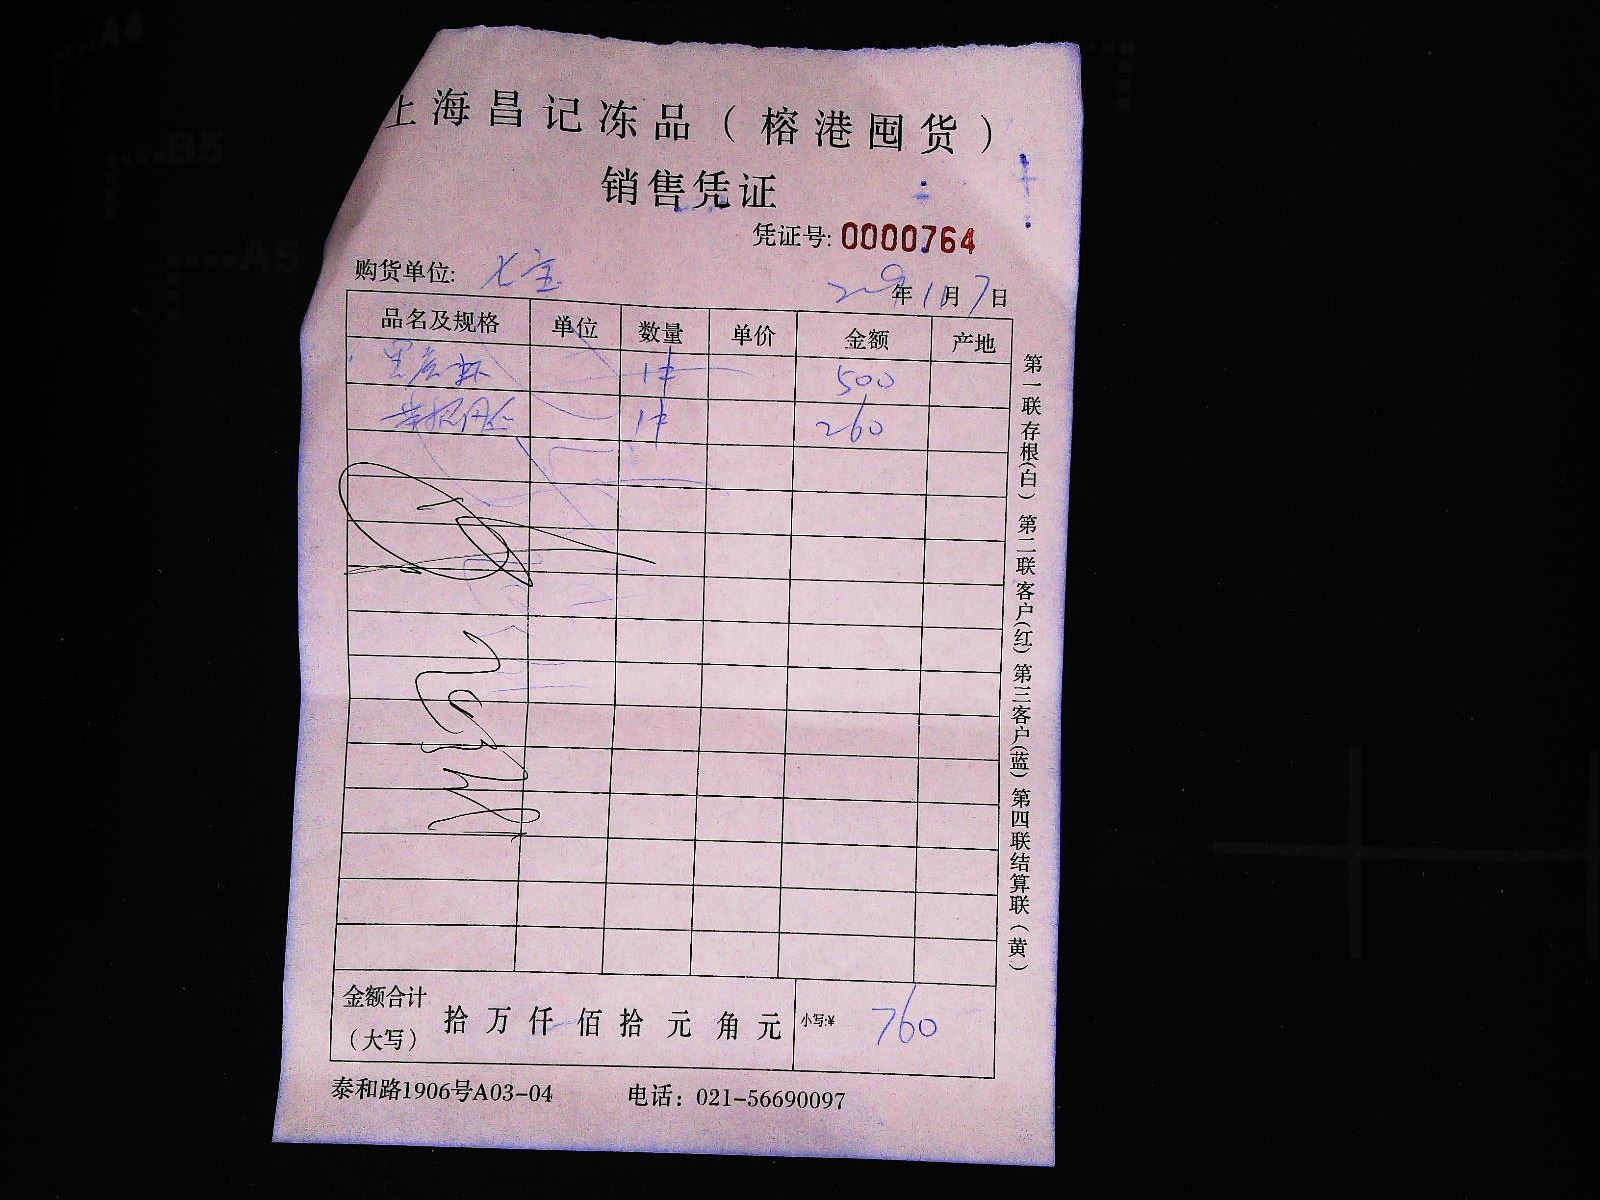 上海昌记冻品（榕港囤货）
销售凭证
凭证号: 0000764
购货单位: 七宝
年 1月 7日
品名及规格 单位 数量 单价 金额 产地
黑虎虾 1件 500
1件 260
金额合计（大写） 拾 万 仟 佰 拾 元 角 元 小写:¥ 760
泰和路1906号A03-04 电话：021-56690097
第一联存根（白） 第二联客户（红） 第三客户（蓝） 第四联结算联（黄）
A4
B5
A5